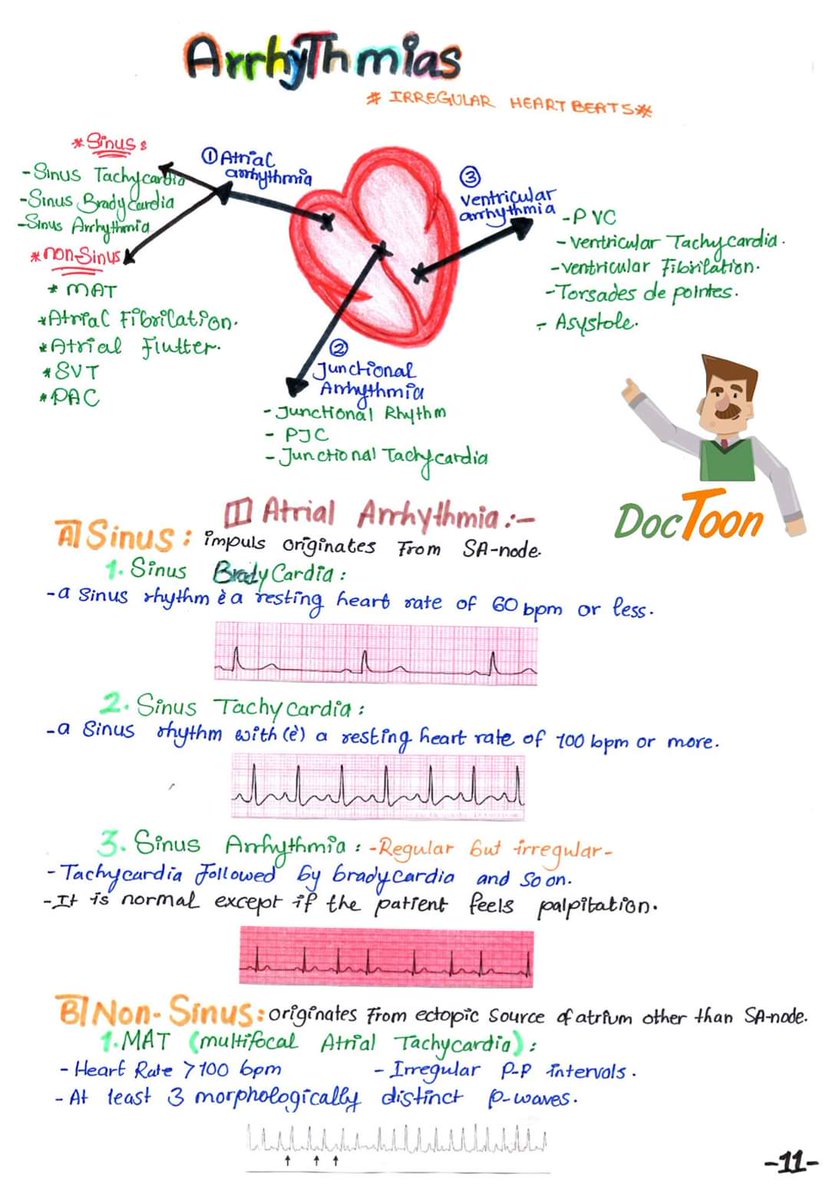 Arrhythmias
* IRREGULAR HEART BEATS*
*Sinus:
-Sinus Tachycardia
-Sinus Bradycardia
-Sinus Arrhythmia
*non-Sinus
* MAT
*Atrial Fibrilation.
*Atrial Flutter.
*SVT
*PAC
① Atrial
arrhythmia
③
Ventricular
arrhythmia
-PVC
-Ventricular Tachycardia.
-Ventricular Fibrilation.
-Torsades de pointes.
- Asystole.
②
Junctional
Arrhythmia
- Junctional Rhythm
- PJC
- Junctional Tachycardia
DocToon
[1] Atrial Arrhythmia:-
A] Sinus: impuls originates From SA-node.
1. Sinus BradyCardia:
-a Sinus rhythm è a resting heart rate of 60 bpm or less.
2. Sinus Tachycardia:
-a Sinus rhythm with(è) a resting heart rate of 100 bpm or more.
3. Sinus Arrhythmia: -Regular but irregular-
- Tachycardia Followed by bradycardia and so on.
-It is normal except if the patient feels palpitation.
B] Non-Sinus: originates From ectopic source of atrium other than SA-node.
1. MAT (multifocal Atrial Tachycardia):
- Heart Rate >100 bpm - Irregular P-P intervals.
- At least 3 morphologically distinct p-waves.
-11-